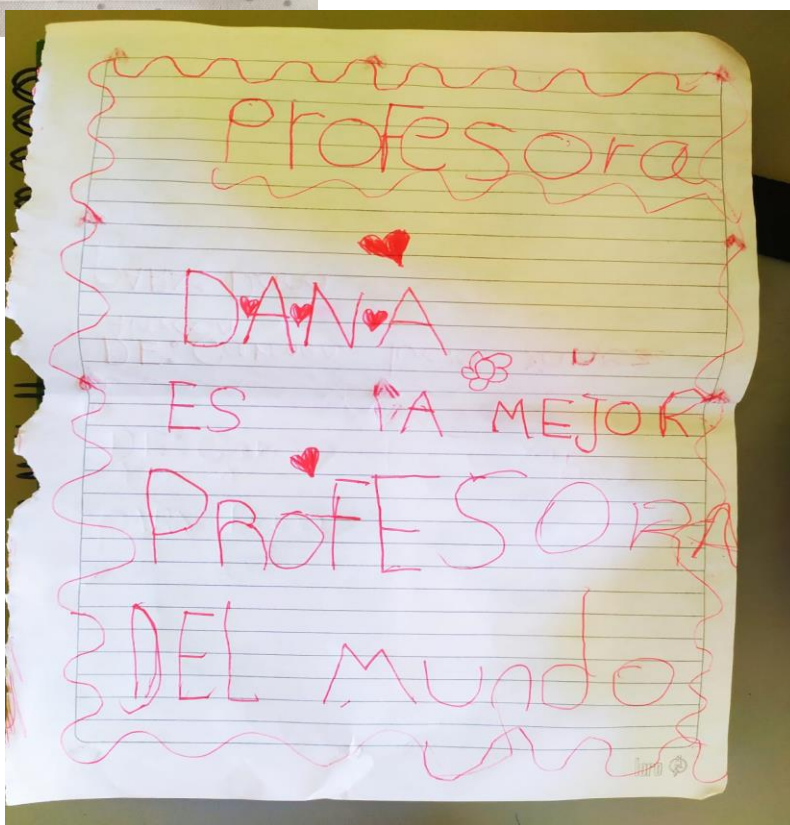 Profesora
DANA
ES LA MEJOR
PROfESORA
DEL Mundo